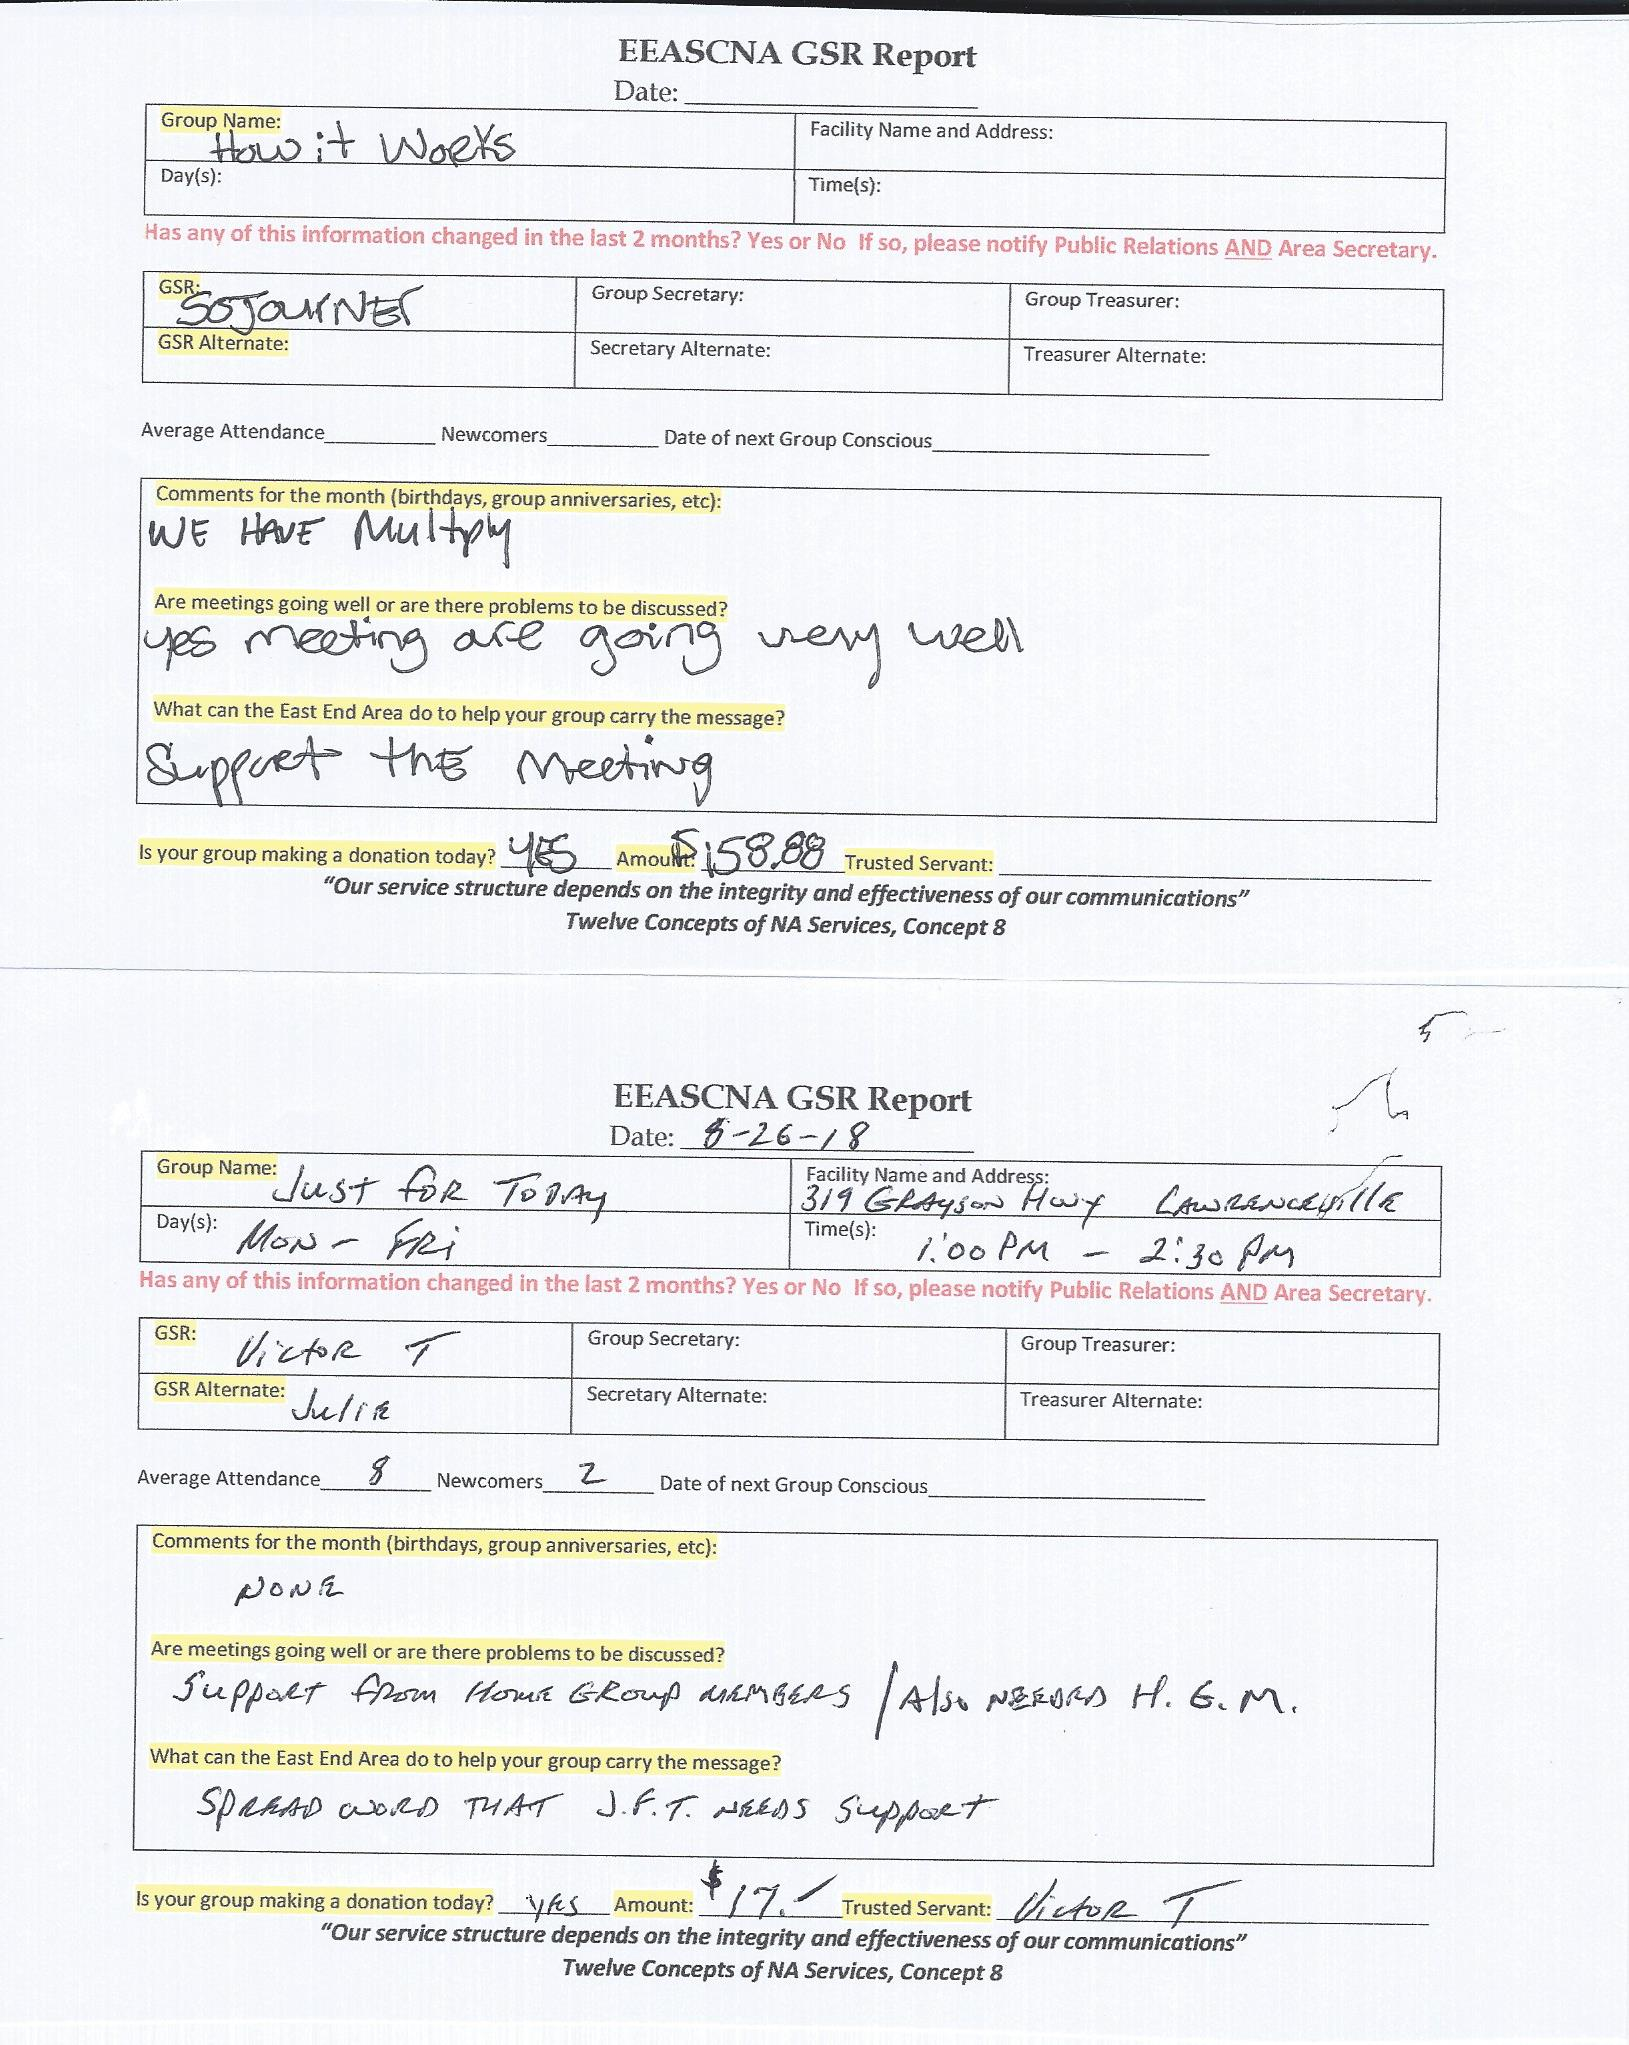 EEASCNA GSR Report
Date:
Group Name: How it Works
Facility Name and Address:
Day(s):
Time(s):
Has any of this information changed in the last 2 months? Yes or No If so, please notify Public Relations AND Area Secretary.
GSR: SOJOURNER
Group Secretary:
Group Treasurer:
GSR Alternate:
Secretary Alternate:
Treasurer Alternate:
Average Attendance Newcomers Date of next Group Conscious
Comments for the month (birthdays, group anniversaries, etc):
WE HAVE Multply
Are meetings going well or are there problems to be discussed?
yes meeting are going very well
What can the East End Area do to help your group carry the message?
Support the Meeting
Is your group making a donation today? YES Amount: $158.88 Trusted Servant:
“Our service structure depends on the integrity and effectiveness of our communications”
Twelve Concepts of NA Services, Concept 8
EEASCNA GSR Report
Date: 8-26-18
Group Name: Just for Today
Facility Name and Address:
319 Grayson Hwy Lawrenceville
Day(s): Mon - Fri
Time(s): 1:00 PM - 2:30 PM
Has any of this information changed in the last 2 months? Yes or No If so, please notify Public Relations AND Area Secretary.
GSR: Victor T
Group Secretary:
Group Treasurer:
GSR Alternate: Julie
Secretary Alternate:
Treasurer Alternate:
Average Attendance 8 Newcomers 2 Date of next Group Conscious
Comments for the month (birthdays, group anniversaries, etc):
NONE
Are meetings going well or are there problems to be discussed?
Support from Home Group members / Also needed H. G. M.
What can the East End Area do to help your group carry the message?
Spread word that J.F.T. needs support
Is your group making a donation today? yes Amount: $17. Trusted Servant: Victor T
“Our service structure depends on the integrity and effectiveness of our communications”
Twelve Concepts of NA Services, Concept 8